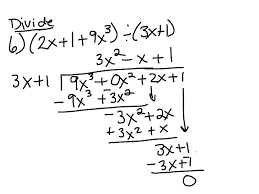 Divide
6) (2x+1+9x³) ÷ (3x+1)
3x² - x + 1
3x+1 9x³ + 0x² + 2x + 1
- 9x³ + 3x²
- 3x² + 2x
+ 3x² + x
3x + 1
- 3x + 1
0